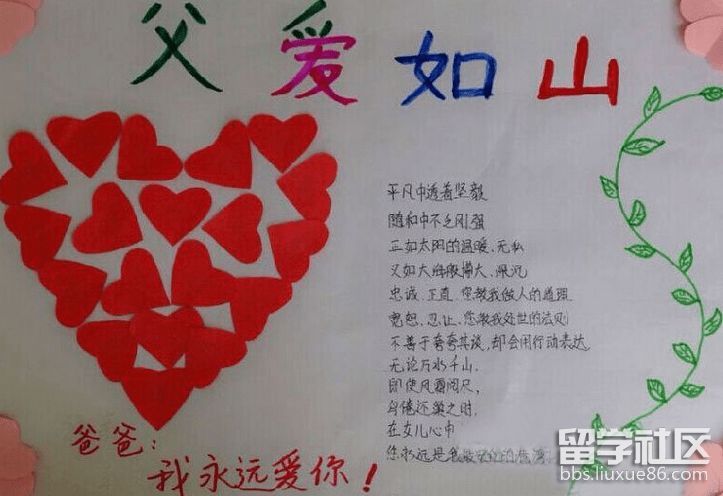 父爱如山
平凡中透着坚毅
随和中不乏刚强
正如太阳的温暖、无私
又如大海般博大、深沉
忠诚、正直、您教我做人的道理
宽恕、忍让、您教我处世的法则
不善于夸夸其谈，却会用行动表达，
无论万水千山，
即使风霜闭尺，
身倦还巢之时，
在女儿心中
您永远是我
爸爸：
我永远爱你！
留学社区
bbs.liuxue86.com